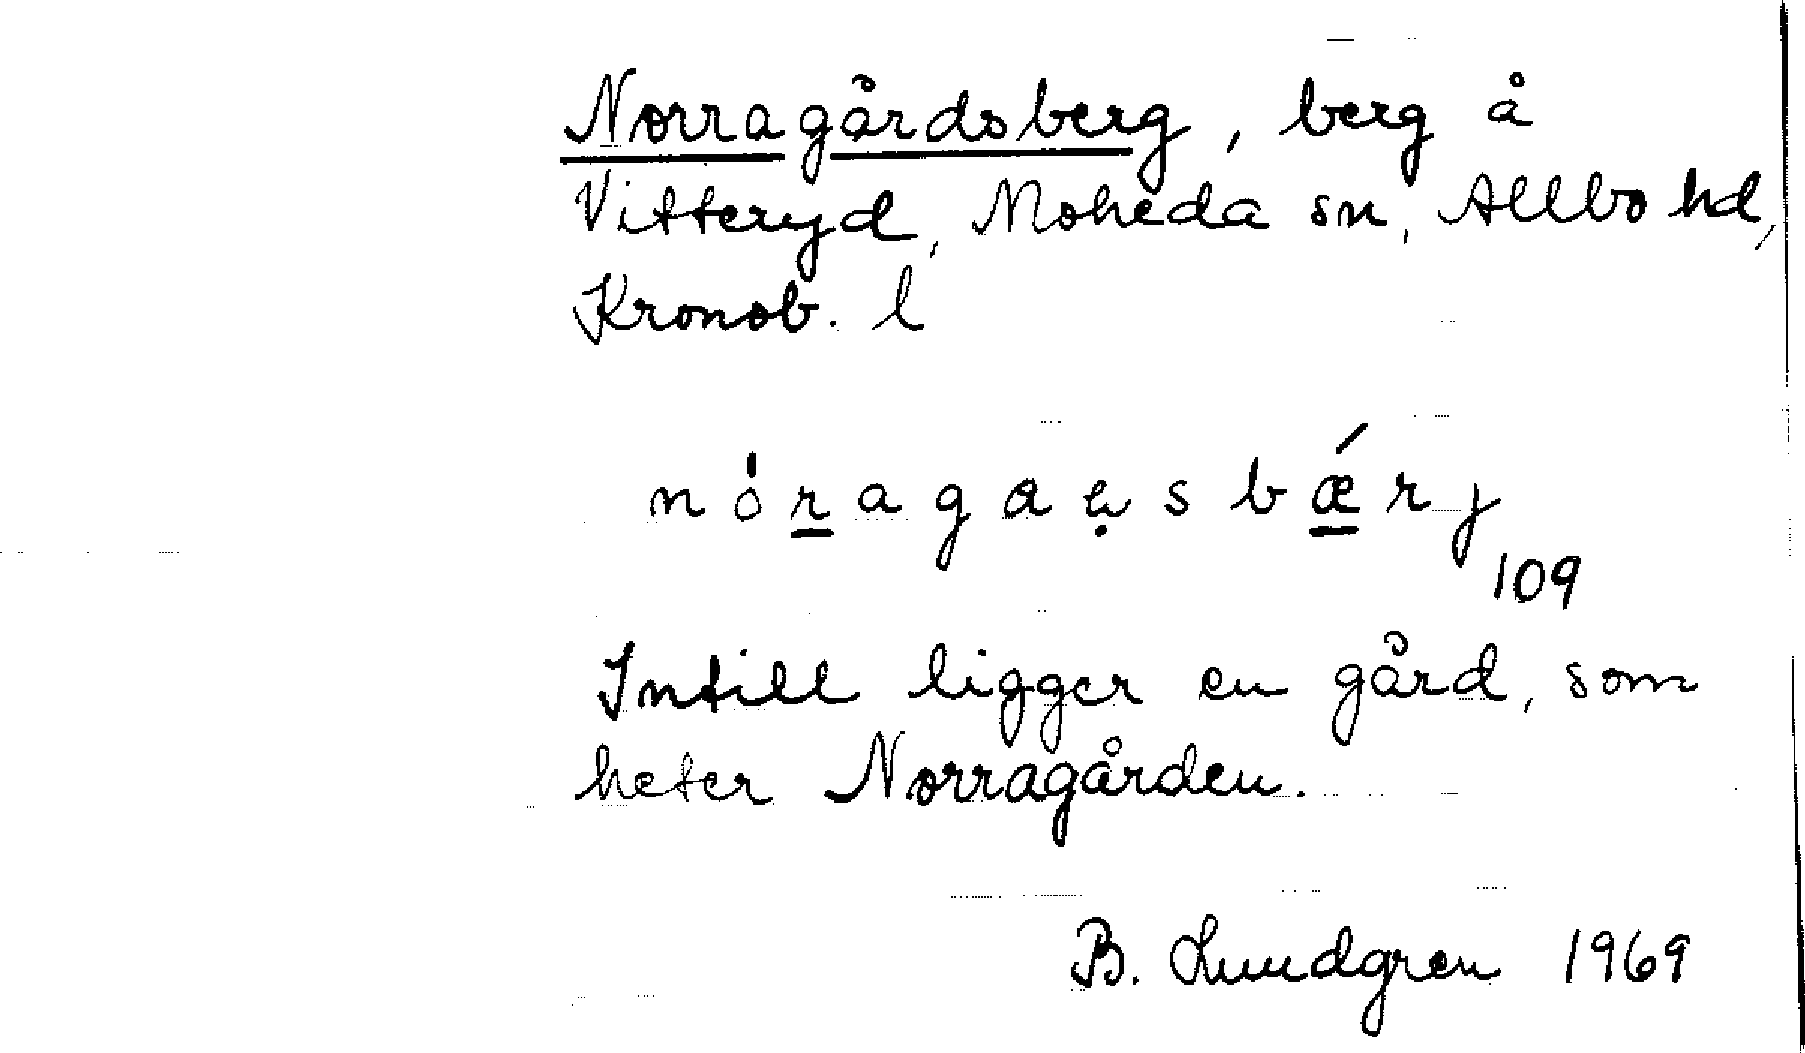 Norragårdsberg, berg å
Vitteryd, Moheda sn, Allbo hd,
Kronob. l
109
Intill ligger en gård, som
heter Norragården.
B. Lundgren 1969